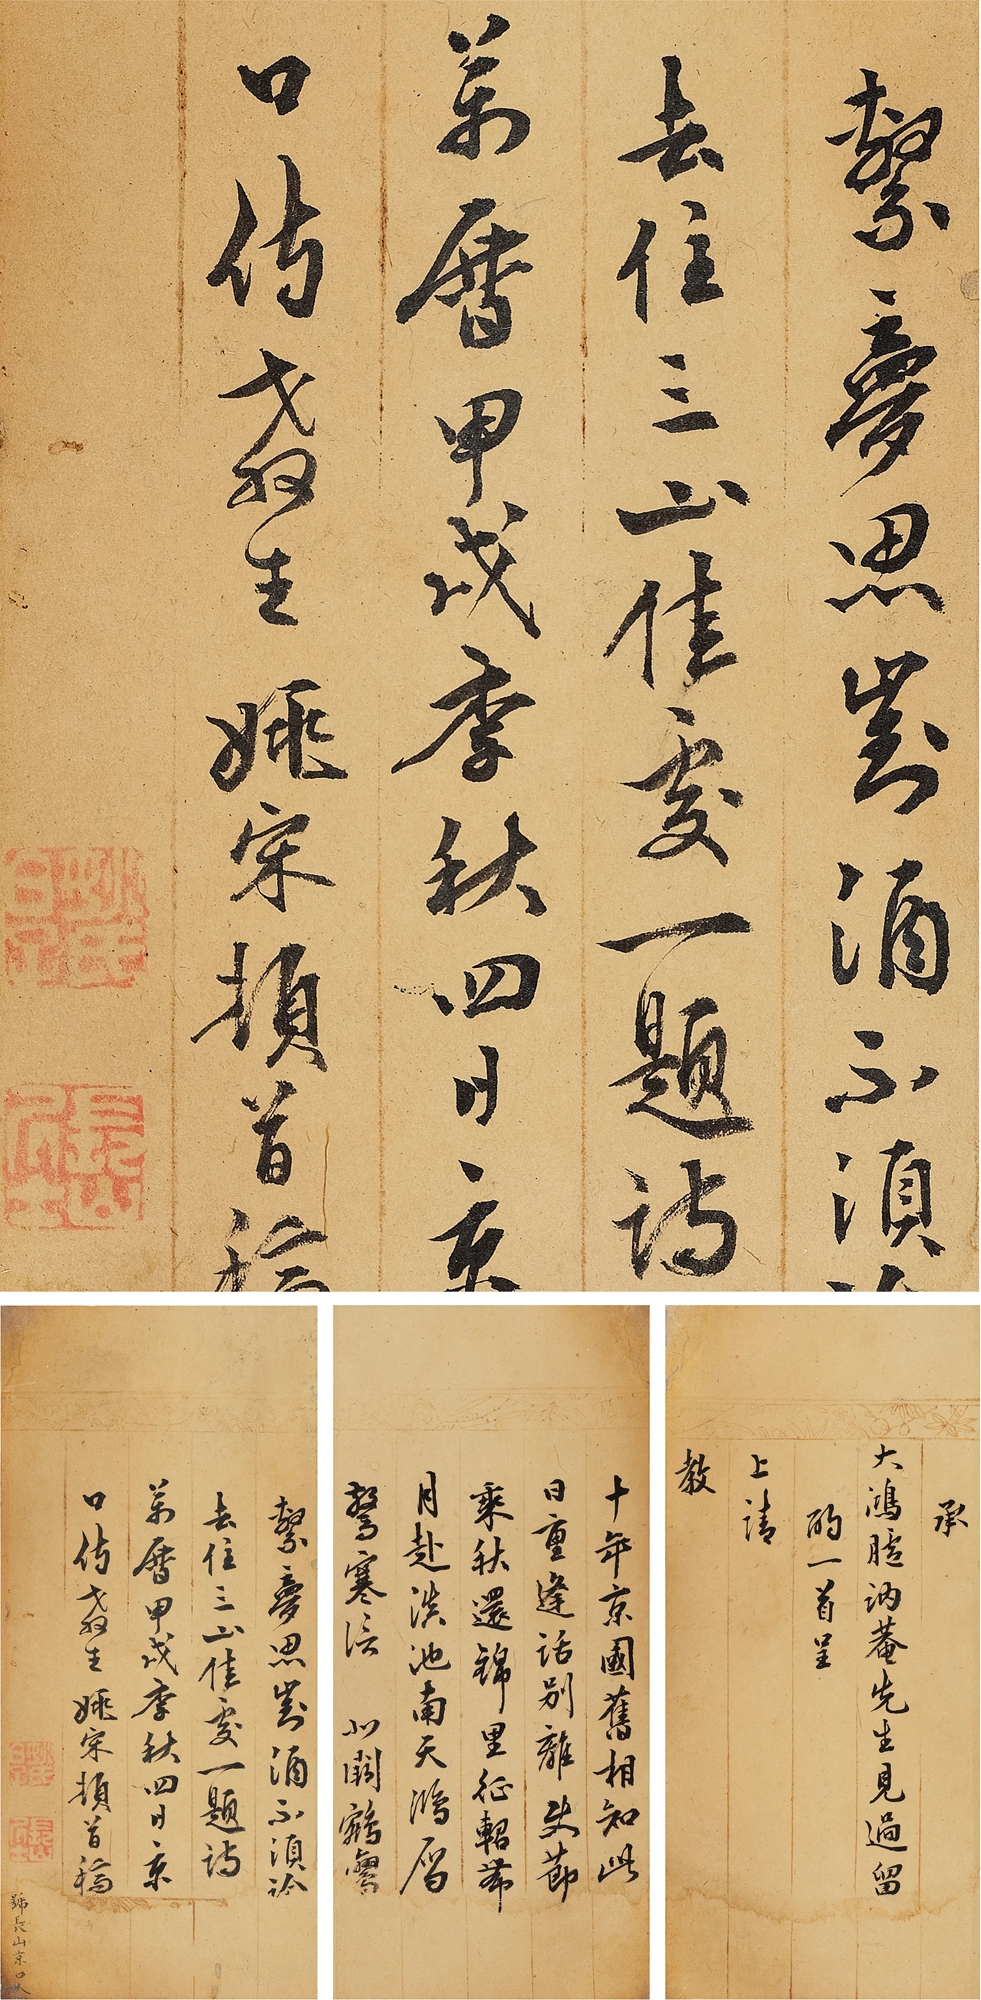 繫夢思對酒不須
去住三山佳處一題詩
萬曆甲戌季秋四日京
口侍教生姚宋頓首稿
承
大鴻臚訥菴先生見過留
酌一首呈
上請
教
十年京國舊相知此
日重逢話別離史節
乘秋還錦里征軺帶
月赴滇池南天鴻雁
驚寒信北闕鵷鸞
繫夢思對酒不須論
去住三山佳處一題詩
萬曆甲戌季秋四日京
口侍教生姚宋頓首稿
號長山京口人